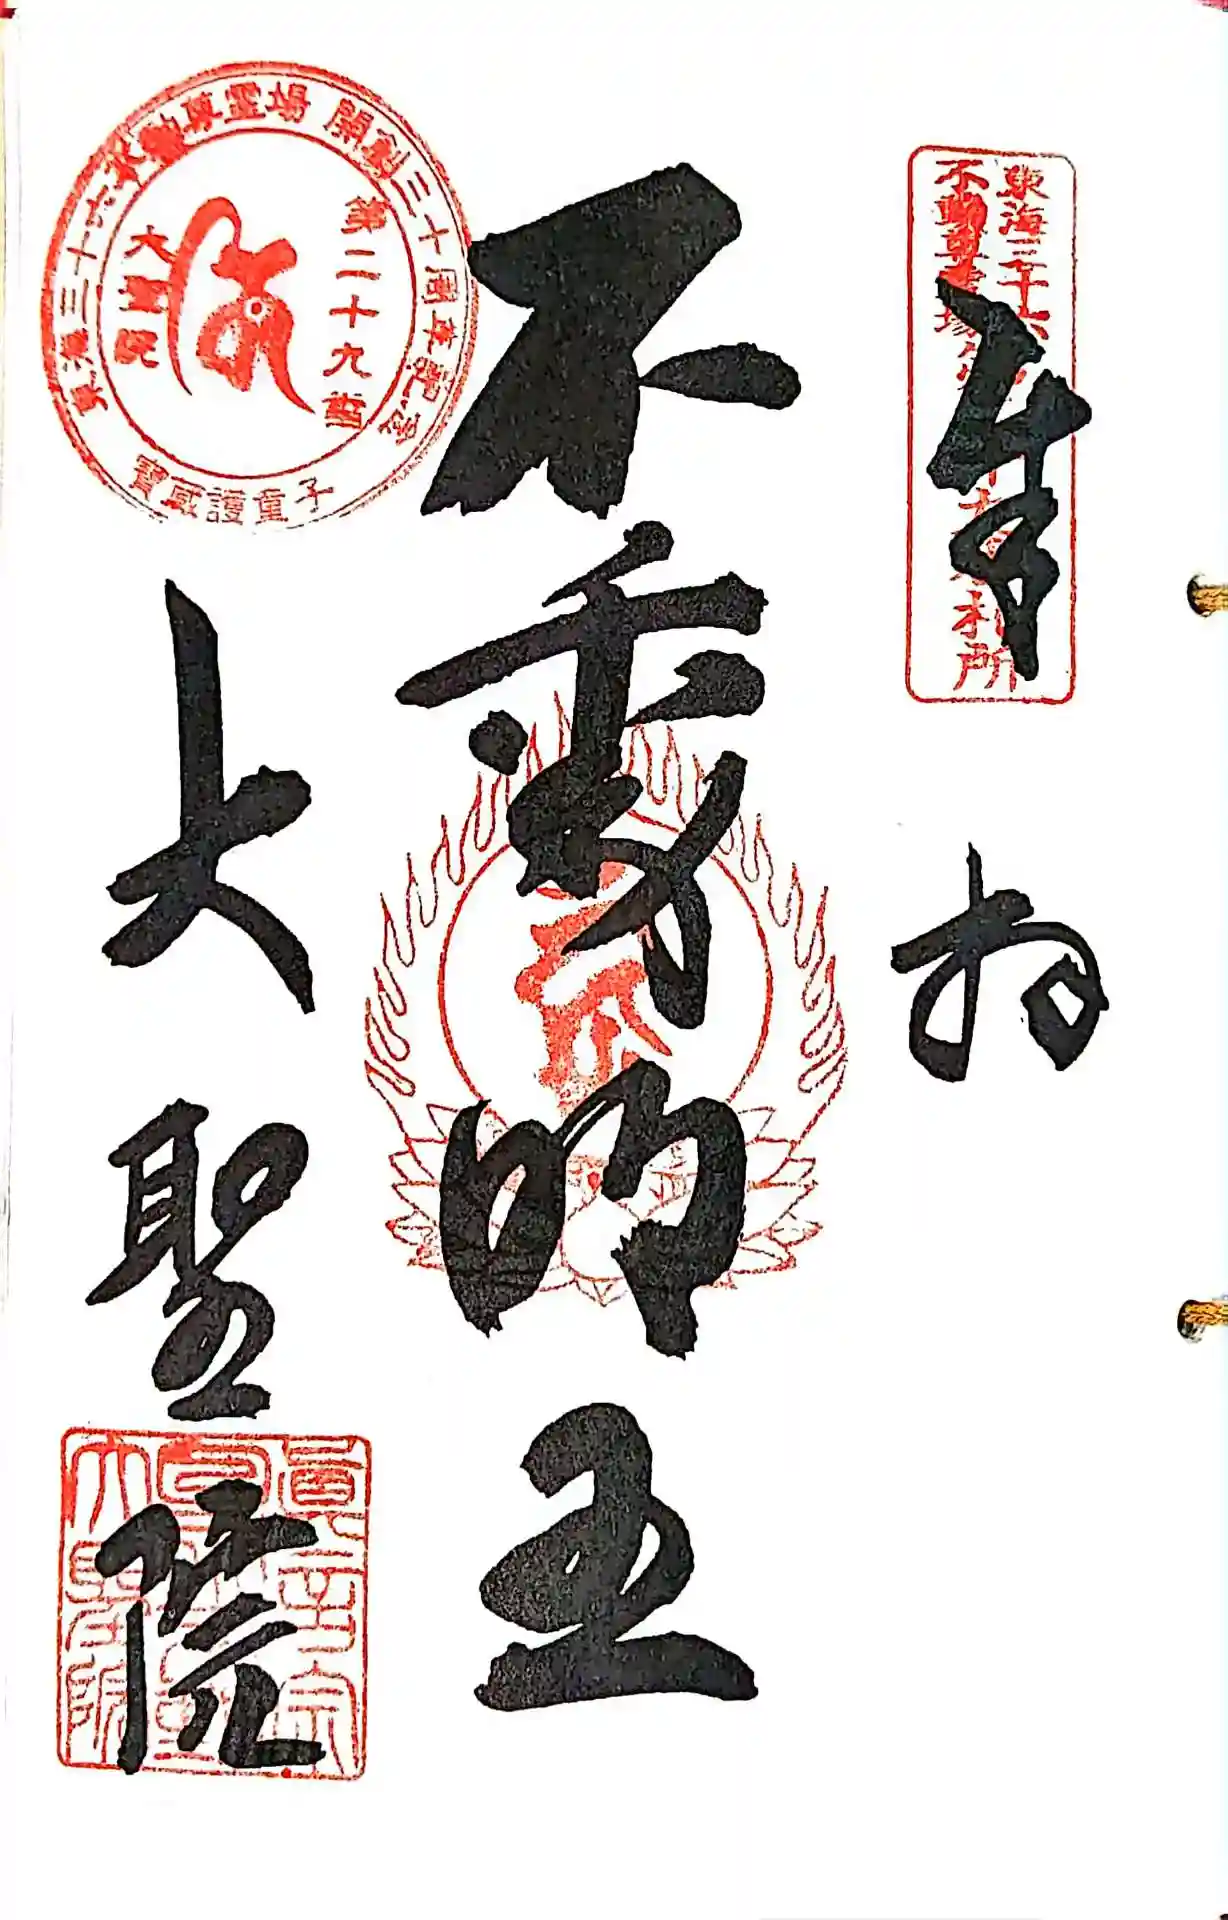 奉
拝
不動明王
大聖院
東海三十六
不動尊霊場
札所
東海三十六不動尊霊場 開創三十周年記念
第二十九番
大聖院
寶蔵護童子
真言宗
大聖院